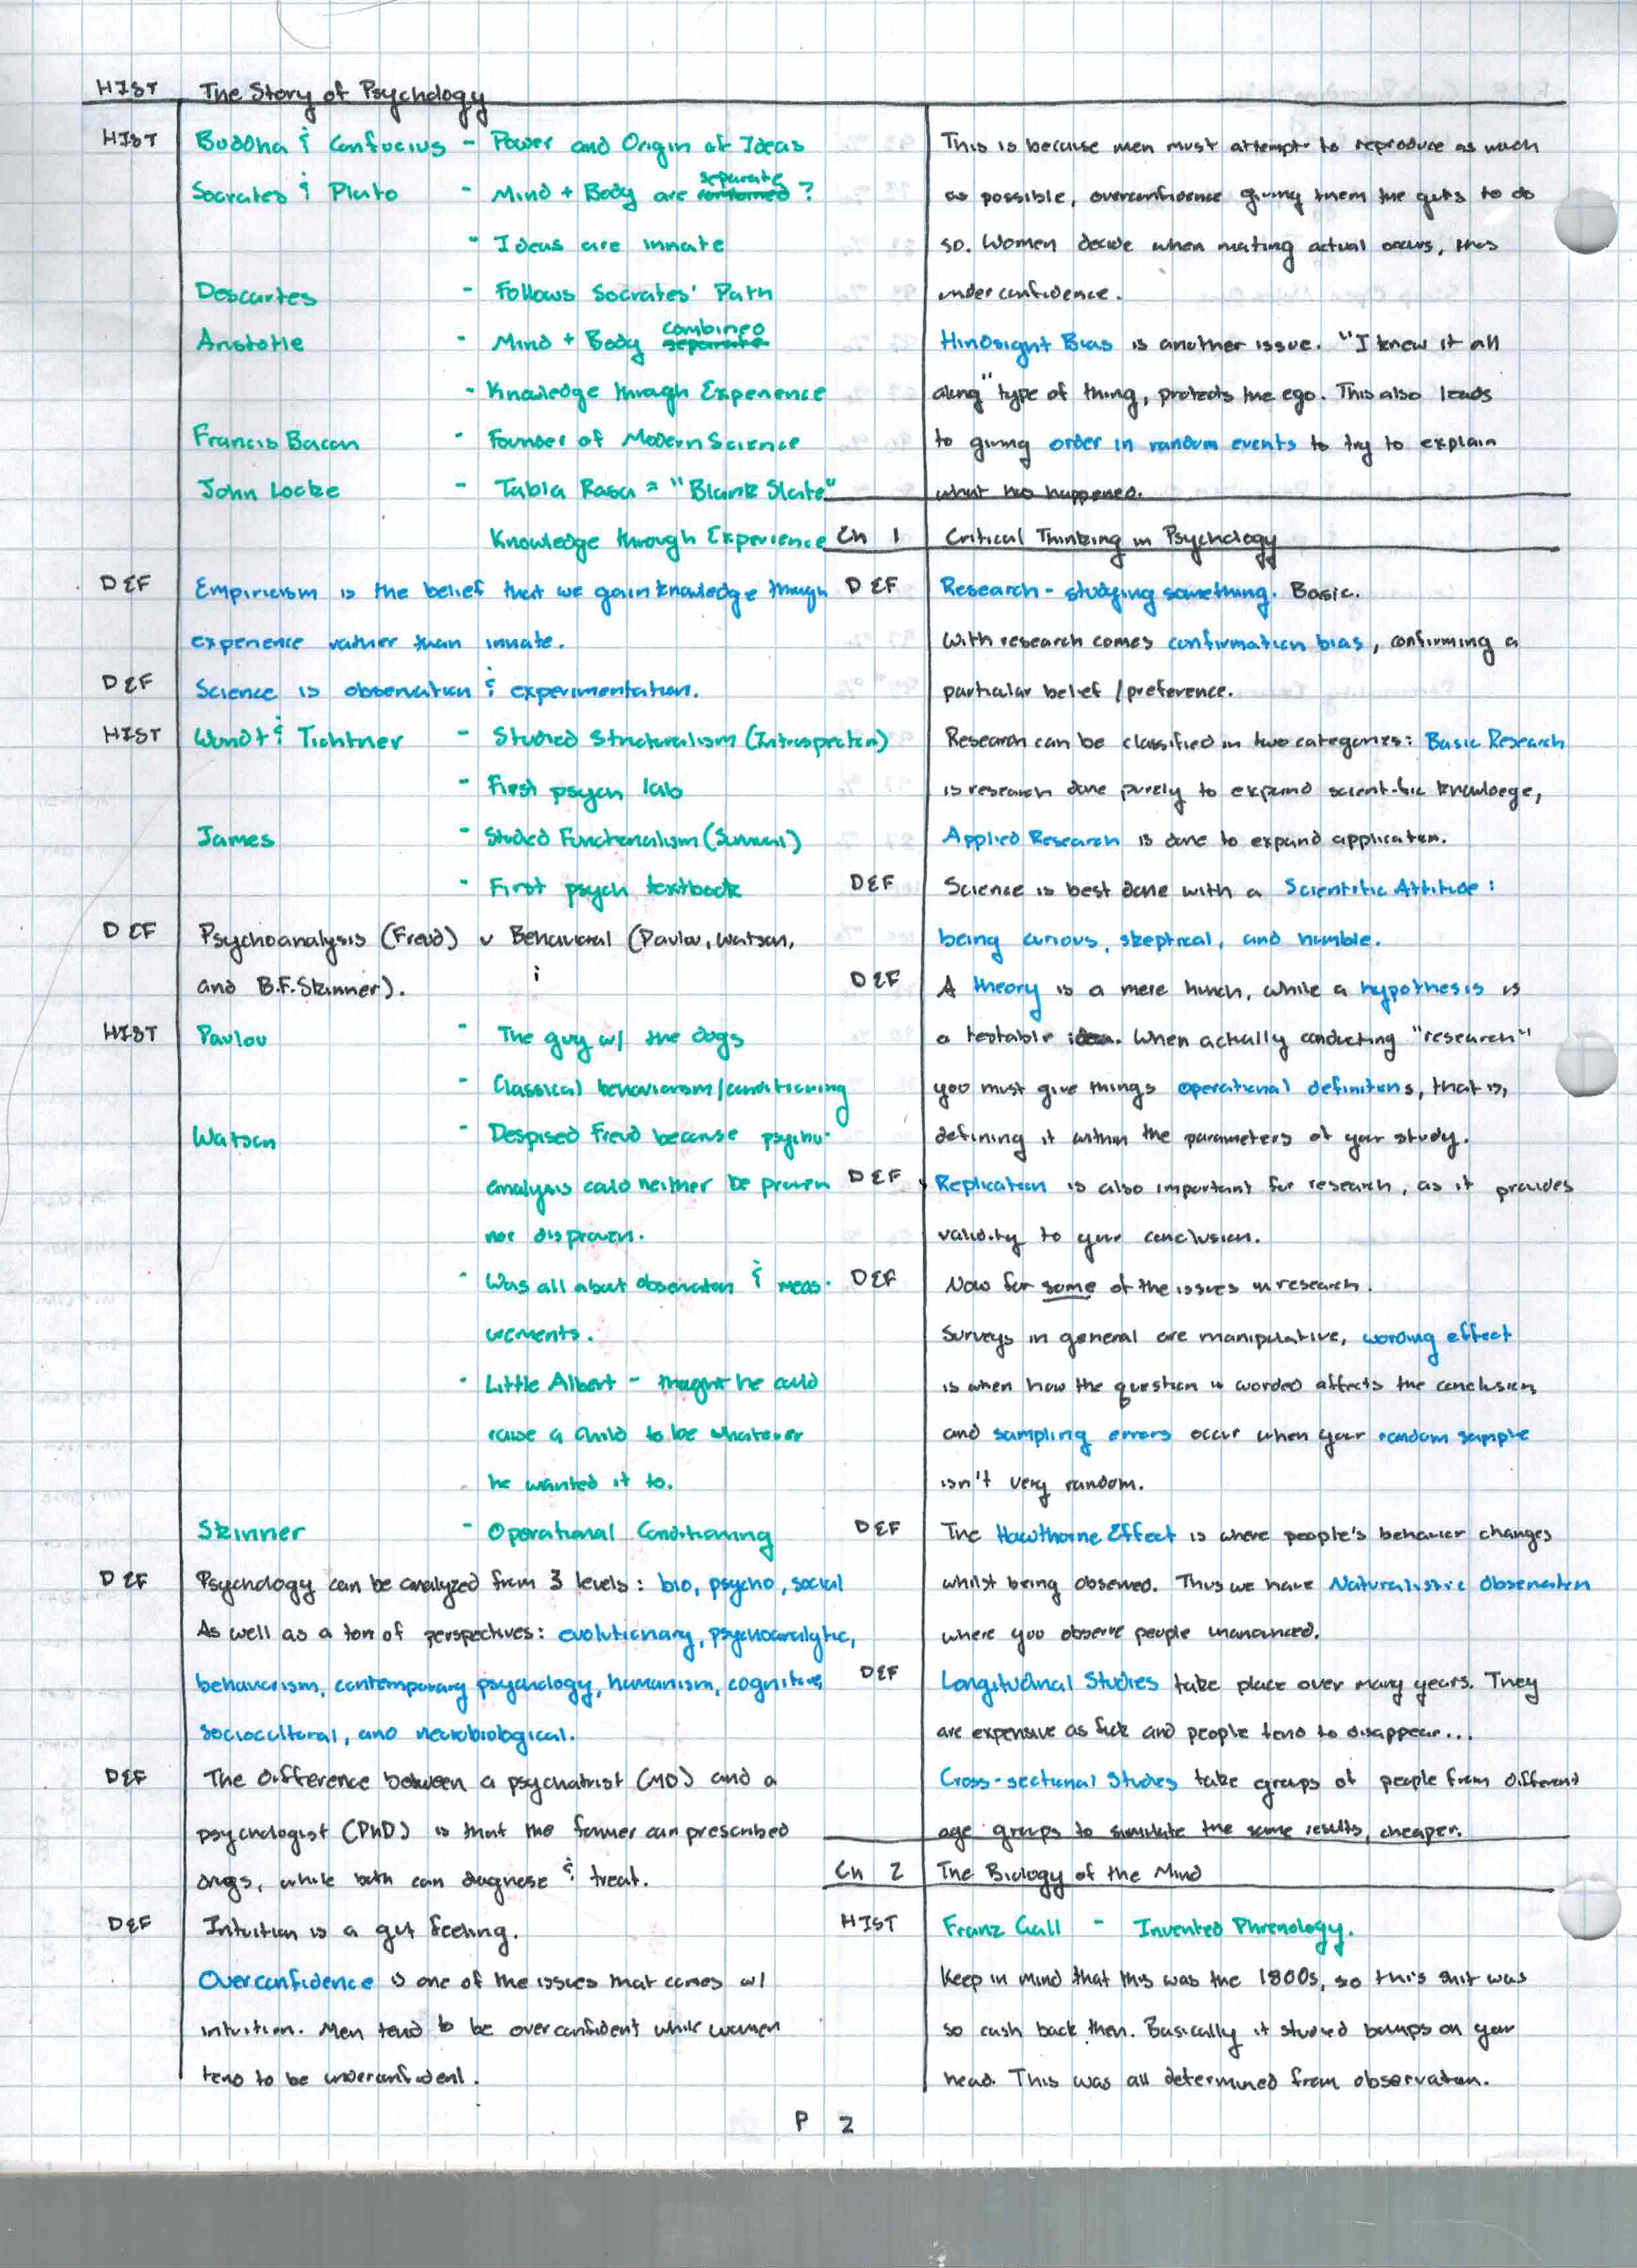 HIST The Story of Psychology
HIST Buddha & Confucius - Power and Origin of Ideas
Socrates & Plato - Mind + Body are separate ?
- Ideas are innate
Descartes - Follows Socrates' Path
Aristotle - Mind + Body combined
- Knowledge through Experience
Francis Bacon - Founder of Modern Science
John Locke - Tabla Rasa = "Blank Slate"
Knowledge through Experience
DEF Empiricism is the belief that we gain knowledge though
experience rather than innate.
DEF Science is observation & experimentation.
HIST Wundt & Tichtner - Studied Structuralism (Introspection)
- First psych lab
James - Studied Functionalism (Survival)
- First psych textbook
DEF Psychoanalysis (Freud) v Behavioral (Pavlov, Watson,
and B.F. Skinner).
HIST Pavlov - The guy w/ the dogs
- Classical behaviorism/conditioning
Watson - Despised Freud because psycho-
analysis could neither be proven
nor disproven.
- Was all about observation & meas-
urements.
- Little Albert - thought he could
raise a child to be whatever
he wanted it to.
Skinner - Operational Conditioning
DEF Psychology can be analyzed from 3 levels: bio, psycho, social
As well as a ton of perspectives: evolutionary, psychoanalytic,
behaviorism, contemporary psychology, humanism, cognitive,
sociocultural, and neurobiological.
DEF The difference between a psychiatrist (MD) and a
psychologist (PhD) is that the former can prescribed
drugs, while both can diagnose & treat.
DEF Intuition is a gut feeling.
Overconfidence is one of the issues that comes w/
intuition. Men tend to be overconfident while women
tend to be underconfident.
This is because men must attempt to reproduce as much
as possible, overconfidence giving them the guts to do
so. Women decide when mating actual occurs, thus
underconfidence.
Hindsight Bias is another issue. "I knew it all
along" type of thing, protects the ego. This also leads
to giving order in random events to try to explain
what has happened.
Ch 1 Critical Thinking in Psychology
DEF Research - studying something. Basic.
With research comes confirmation bias, confirming a
particular belief / preference.
Research can be classified in two categories: Basic Research
is research done purely to expand scientific knowledge,
Applied Research is done to expand application.
DEF Science is best done with a Scientific Attitude:
being curious, skeptical, and humble.
DEF A theory is a mere hunch, while a hypothesis is
a testable idea. When actually conducting "research"
you must give things operational definitions, that is,
defining it within the parameters of your study.
DEF Replication is also important for research, as it provides
validity to your conclusion.
DEF Now for some of the issues in research.
Surveys in general are manipulative, wording effect
is when how the question is worded affects the conclusion,
and sampling errors occur when your random sample
isn't very random.
DEF The Hawthorne Effect is where people's behavior changes
whilst being observed. Thus we have Naturalistic Observation
where you observe people unannounced.
DEF Longitudinal Studies take place over many years. They
are expensive as fuck and people tend to disappear...
Cross-sectional Studies take groups of people from different
age groups to simulate the same results, cheaper.
Ch 2 The Biology of the Mind
HIST Franz Gall - Invented Phrenology.
Keep in mind that this was the 1800s, so this shit was
so cash back then. Basically it studied bumps on your
head. This was all determined from observation.
P 2